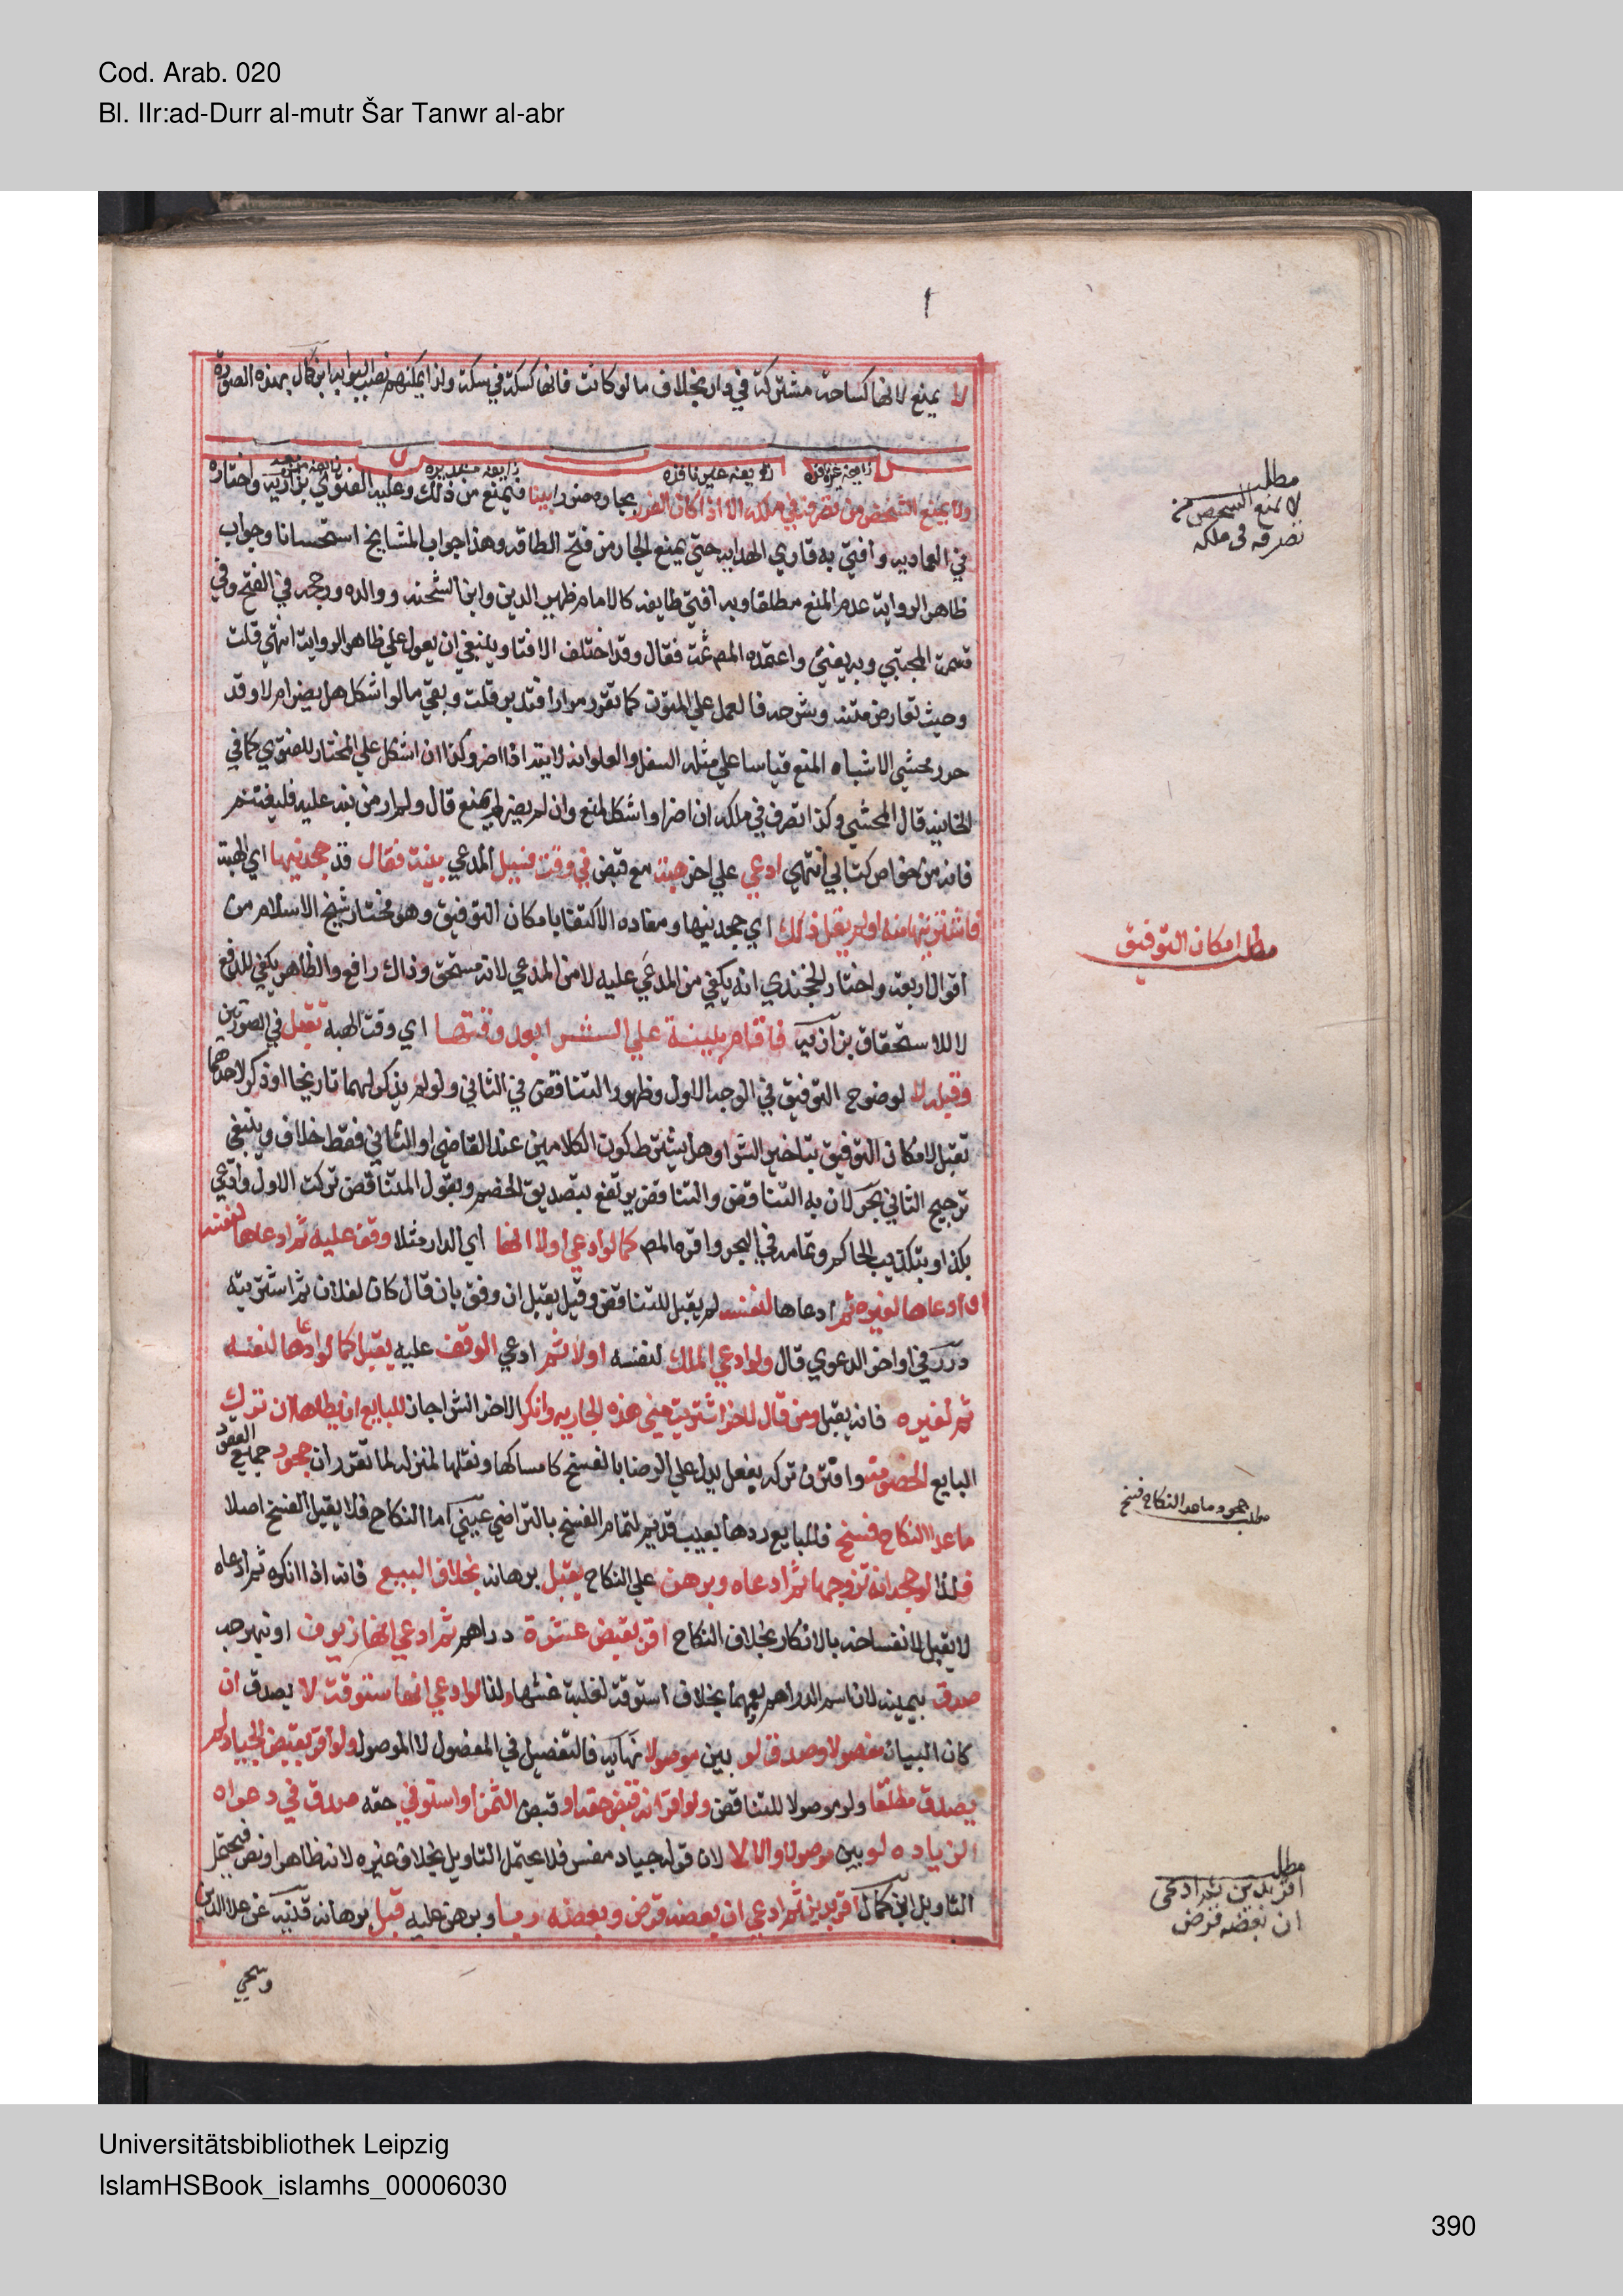 Cod. Arab. 020
Bl. IIr:ad-Durr al-mutr Šar Tanwr al-abr
لا يمنع لانها كساحة مشتركة في دار بخلاف ما لو كانت فانها كسكة في سكة ولذا يمكنهم نصب البوابه ابن كمال بهذه الصورة
ولا يمنع الشخص من تصرفه في ملكه الا اذا كان الضرر بجاره ضررا بينا فيمنع من ذلك وعليه الفتوي بزازيه واختاره
في العماديه وافتي به قاري الهدايه حتي يمنع الجار من فتح الطاقه وهذا جواب المشايخ استحسانا وجواب
ظاهر الرواية عدم المنع مطلقا وبه افتي طايفه كالامام ظهير الدين وابن الشحنه ووالده ورجحه في الفتح وفي
قسمة المجتبي وبه يفتي واعتمده المص ثمت فقال وقد اختلف الافتا وينبغي ان يعول علي ظاهر الرواية انتهي قلت
وحيث تعارض متنه وشرحه فالعمل علي المتون كما تقرر مرارا فتدبر قلت وبقي ما لو اشكل هل يضر ام لا وقد
حرر محشي الاشباه المنع قياسا علي مسئلة السفل والعلو انه لا يتد اذا اضر وكذا ان اشكل علي المختار للفتوي كما في
الخانيه قال المحشي وكذا تصرف في ملكه ان اضر او اشكل لمنع وان لم يضر لم يمنع قال ولم ار من نبه عليه فليغتنم
فانه من خواص كتابي انتهي ادعي علي اخر هبة مع قبض في وقت فسيل المدعي بينة فقال قد جحدنيها اي الهبة
فاشتريتها منه او لم يقل ذلك اي جحدنيها ومفاده الاكتفا بامكان التوفيق وهو مختار شيخ الاسلام من
اقوال اربعة واختار الخجندي انه يكفي من المدعي عليه لا من المدعي لانه مستحق وذاك رافع والظاهر يكفي للدفع
لا للاستحقاق بزازيه فاقام بينة علي الشرا بعد وقتها اي وقت الهبة تقبل في الصورتين
وقبله لا لوضوح التوفيق في الوجه الاول وظهور التناقض في الثاني ولو لم يذكر لهما تاريخا او ذكر لاحدهما
تقبل لامكان التوفيق بتاخير الشرا وهل يشترط كون الكلامين عند القاضي او الثاني فقط خلاف وينبغي
ترجيح الثاني بحر لان به التناقض والتناقض يرتفع بتصديق الخصم وبقول المتناقض تركت الاول وادعي
بكذا او بتكذيب الحاكم وتمامه في البحر واقره المص كما لو ادعي اولا انها اي الدار مثلا وقف عليه ثم ادعاها لنفسه
او ادعاها لغيره ثم ادعاها لنفسه لم يقبل للتناقض وقيل يقبل ان وفق بان قال كان لفلان ثم اشتريته
درر في اواخر الدعوي قال ولو ادعي الملك لنفسه اولا ثم ادعي الوقف عليه يقبل كما لو ادعاها لنفسه
ثم لغيره فانه يقبل ومن قال لاخر اشتريت مني هذه الجاريه وانكر الاخر الشرا جاز للبايع ان يطاها ان ترك
البايع الخصومة واقترن تركه بفعل يدل علي الرضا بالفسخ كامساكها ونقلها لمنزله لما تقرر ان جحود جميع العقود
ما عدا النكاح فسخ فللبايع ردها بعيب قديم لتمام الفسخ بالتراضي عيني اما النكاح فلا يقبل الفسخ اصلا
فلذا لو جحد انه تزوجها ثم ادعاه وبرهن علي النكاح يقبل برهانه بخلاف البيع فانه اذا انكره ثم ادعاه
لا يقبل لانفساخه بالانكار بخلاف النكاح اقر بقبض عشرة دراهم ثم ادعي انها زيوف او نبهرجه
صدق بيمينه لان اسم الدراهم يعمهما بخلاف الستوقه لغلبة غشها ولذا لو ادعي انها ستوقة لا يصدق ان
كان البيان مفصولا وصدق لو بين موصولا نهايه فالتفصيل في المفصول لا الموصول ولو اقر بقبض الجياد لم
يصدق مطلقا ولو موصولا للتناقض ولو اقر انه قبض حقه او قبض الثمن او استوفي حقه صدق في دعواه
الزيافه لو بين موصولا والا لا لان قوله جياد مفسر فلا يحتمل التاويل بخلاف غيره لانه ظاهر او نص فيحتمل
التاويل ابن كمال اقر بدين ثم ادعي ان بعضه قرض وبعضه ربا وبرهن عليه قبل برهانه قنيه عن علا الدين
وسيجي
مطلب
لا يمنع الشخص من
تصرفه في ملكه
مطلب امكان التوفيق
مطلب جحود ما عدا النكاح فسخ
مطلب
اقر بدين ثم ادعى
ان بعضه قرض
Universitätsbibliothek Leipzig
IslamHSBook_islamhs_00006030
390